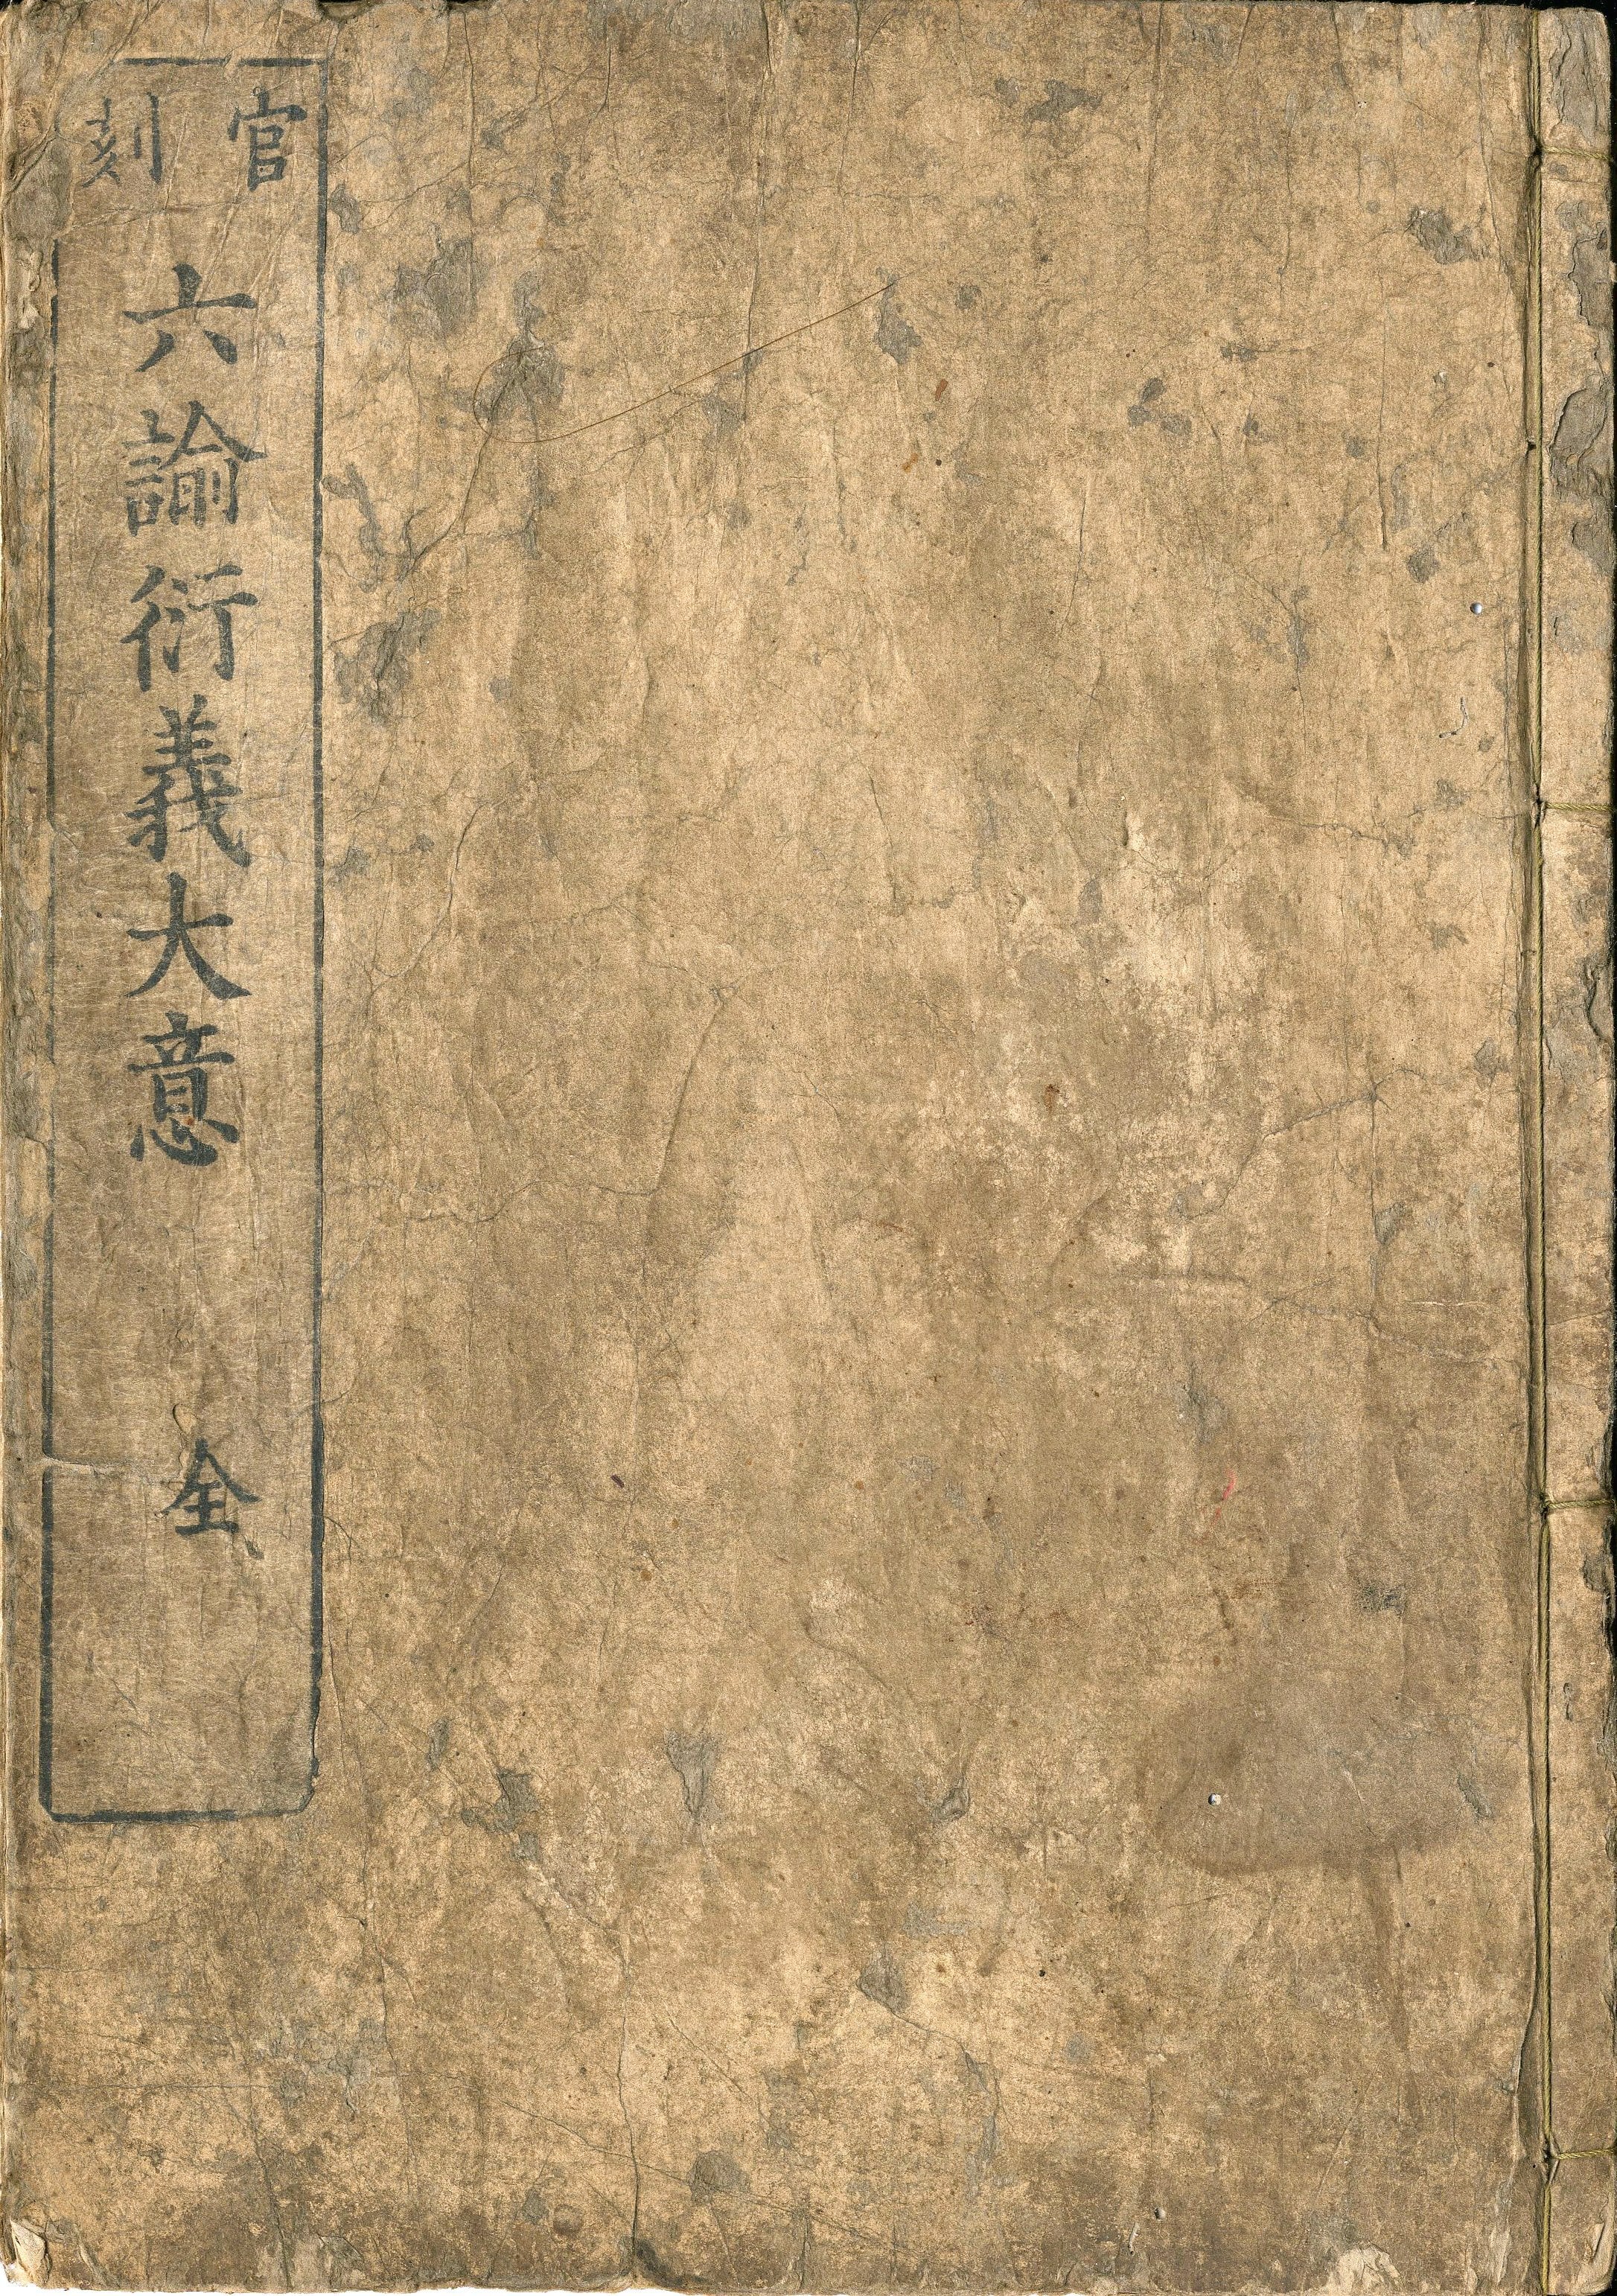 官刻
六諭衍義大意
全